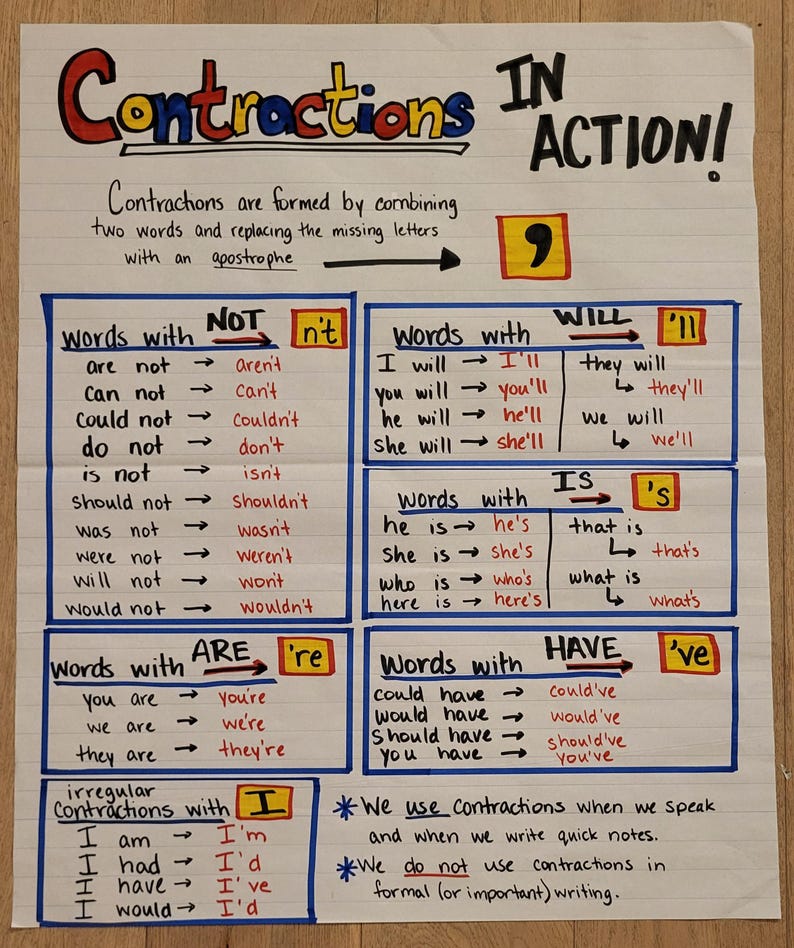 Contractions IN
ACTION!
Contractions are formed by combining
two words and replacing the missing letters
with an apostrophe → ’
Words with NOT → n't
are not → aren't
can not → can't
could not → couldn't
do not → don't
is not → isn't
should not → shouldn't
was not → wasn't
were not → weren't
will not → won't
would not → wouldn't
Words with WILL → 'll
I will → I'll
you will → you'll
he will → he'll
she will → she'll
they will
↳ they'll
we will
↳ we'll
Words with IS → 's
he is → he's
she is → she's
who is → who's
here is → here's
that is
↳ that's
what is
↳ what's
Words with ARE → 're
you are → you're
we are → we're
they are → they're
Words with HAVE → 've
could have → could've
would have → would've
should have → should've
you have → you've
irregular
Contractions with I
I am → I'm
I had → I'd
I have → I've
I would → I'd
* We use contractions when we speak
and when we write quick notes.
* We do not use contractions in
formal (or important) writing.